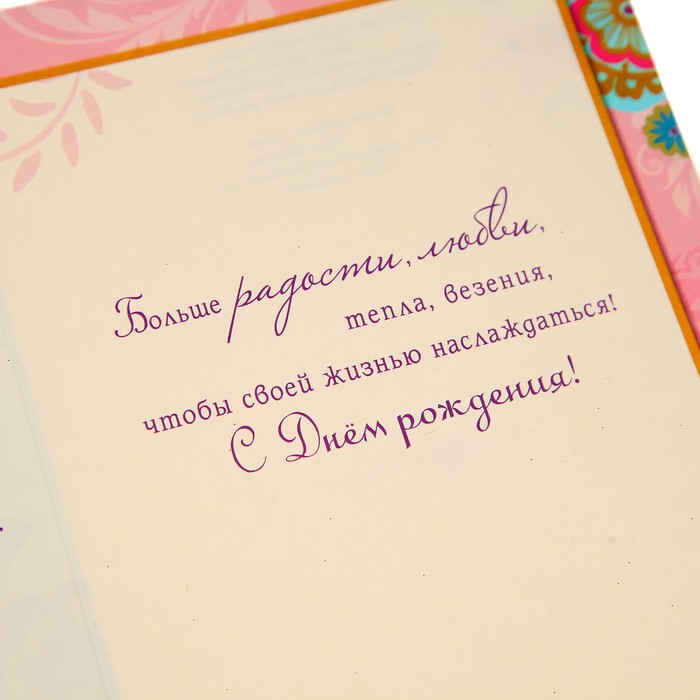 Больше радости, любви,
тепла, везения,
чтобы своей жизнью наслаждаться!
С Днём рождения!